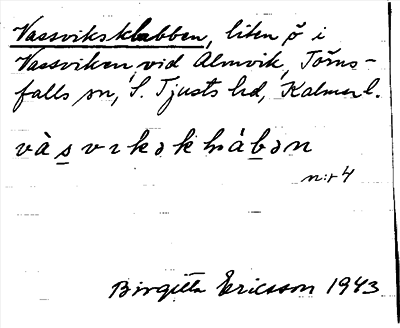 Vassviksklabben, liten ö i
Vassviken, vid Almvik, Törns-
falls sn, S. Tjusts hd, Kalmar l.
n:r 4
Birgitta Ericsson 1943